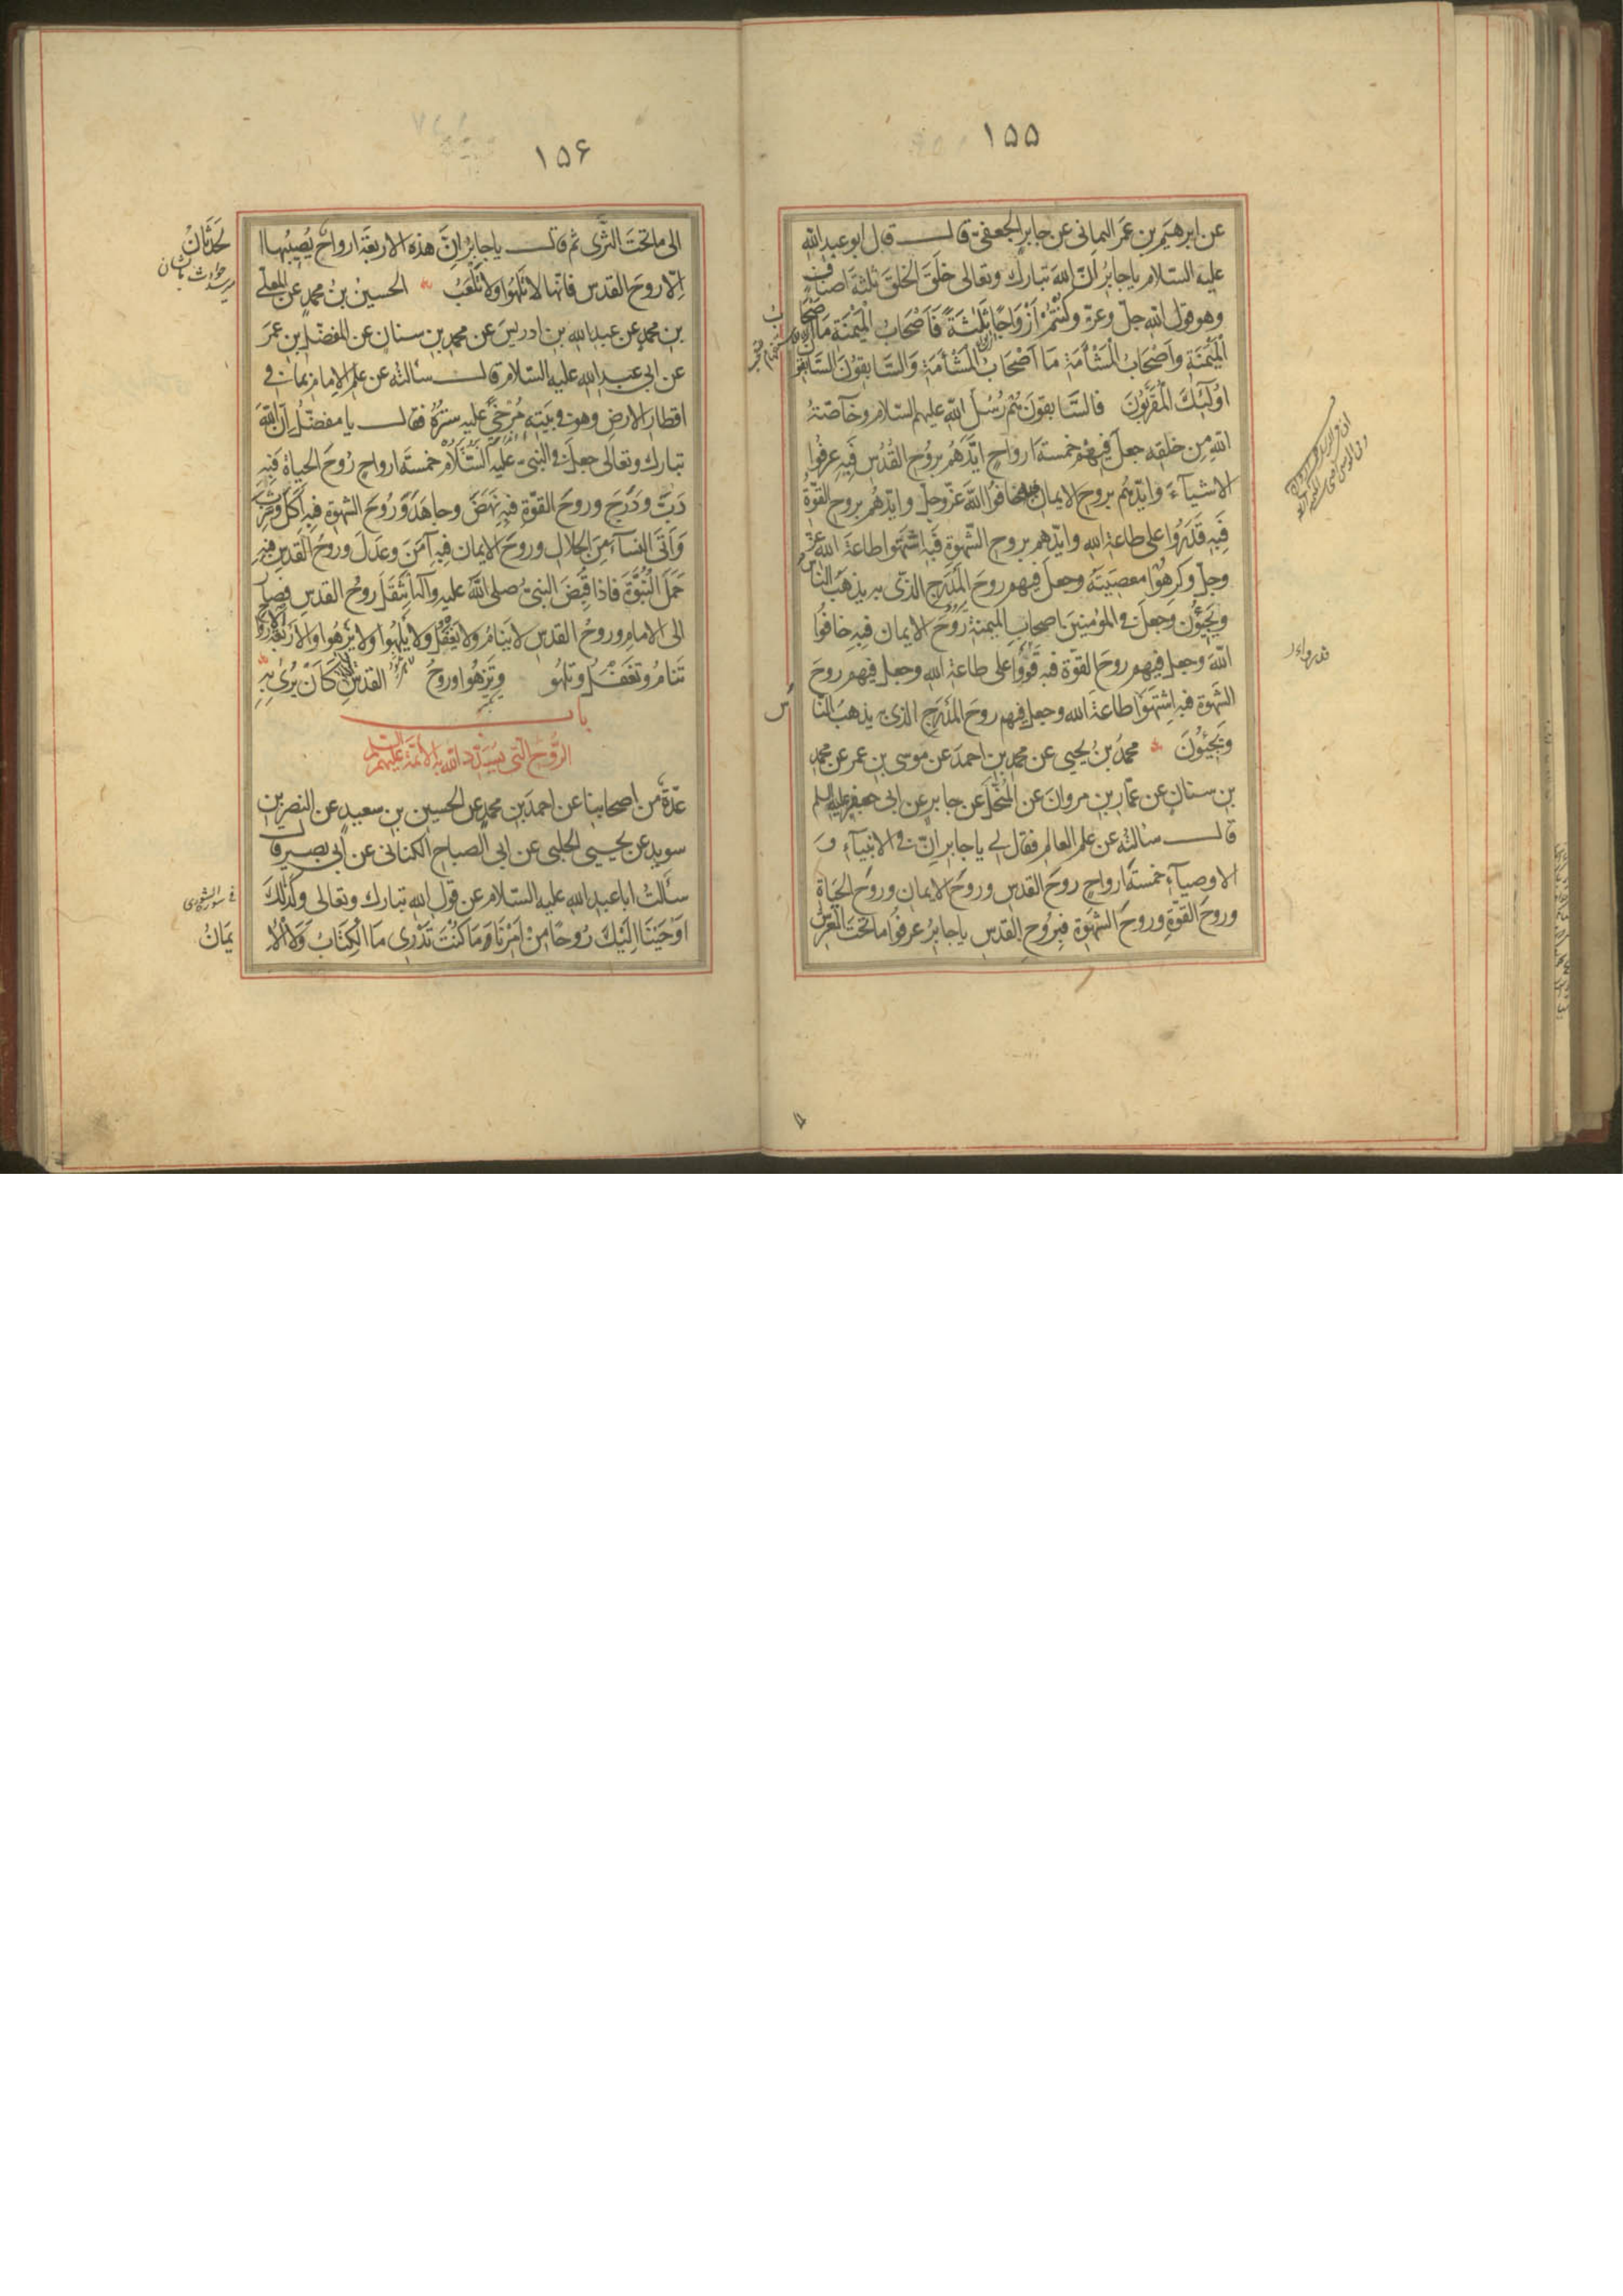 ١٥٥
عن ابرهيم بن عمر اليمانى عن جابر الجعفىّ قالــ قال ابو عبد الله
عليه السلام يا جابر انّ الله تبارك وتعالى خلق الخلق ثلثة اصناف
وهو قول الله جلّ وعزّ وكنتم ازواجا ثلثة فاصحاب الميمنة ما اصحاب
الميمنة واصحاب المشأمة ما اصحاب المشأمة والسابقون السابقون
اولئك المقرّبون فالسابقون هم رسل الله عليهم السلام وخاصّة
الله من خلقه جعل فيهم خمسة ارواح ايّدهم بروح القدس فبه عرفوا
الاشيآء وايّدهم بروح الايمان فبه خافوا الله عزّ وجلّ وايّدهم بروح القوّة
فبه قدروا على طاعة الله وايّدهم بروح الشهوة فبه اشتهوا طاعة الله عزّ
وجلّ وكرهوا معصيته وجعل فيهم روح المدرج الذى به يذهب الناس
ويجيئون وجعل فى المؤمنين اصحاب الميمنة روح الايمان فبه خافوا
الله وجعل فيهم روح القوّة فبه قووا على طاعة الله وجعل فيهم روح
الشهوة فبه اشتهوا طاعة الله وجعل فيهم روح المدرج الذى به يذهب الناس
ويجيئون محمد بن يحيى عن محمد بن احمد عن موسى بن عمر عن محمد
بن سنان عن عمّار بن مروان عن المنخّل عن جابر عن ابى جعفر عليه السلم
قالــ سالته عن علم العالم فقال لى يا جابر انّ فى الانبيآء و
الاوصيآء خمسة ارواح روح القدس وروح الايمان وروح الحياة
وروح القوّة وروح الشهوة فبروح القدس يا جابر عرفوا ما تحت العرش
١٥۶
الى ما تحت الثرى ثم قالــ يا جابر انّ هذه الاربعة ارواح يصيبها
الحدثان
الّا روح القدس فانّها لا تلهوا ولا تلعب الحسين بن محمد عن المعلّى
بن محمد عن عبد الله بن ادريس عن محمد بن سنان عن المفضّل بن عمر
عن ابى عبد الله عليه السلام قالــ سالته عن علم الامام بما فى
اقطار الارض وهو فى بيته مرخى عليه ستره فقالــ يا مفضّل ان الله
تبارك وتعالى جعل فى النبىّ عليه السلام خمسة ارواح روح الحياة فبه
دبّ ودرج وروح القوّة فبه نهض وجاهد وروح الشهوة فبه اكل وشرب
واتى النسآء من الحلال وروح الايمان فبه آمن وعدل وروح القدس فبه
حمل النبوّة فاذا قبض النبىّ صلى الله عليه وآله انتقل روح القدس فصار
الى الامام وروح القدس لا ينام ولا يغفل ولا يلهوا ولا يزهوا والاربعة الارواح
تنام وتغفل وتلهو وتزهوا وروح القدس كان يرى به
باب
الرّوح التى يسدّد الله بها الائمّة عليهم السلم
عدّة من اصحابنا عن احمد بن محمد عن الحسين بن سعيد عن النضر بن
سويد عن يحيى الحلبى عن ابى الصباح الكنانى عن ابى بصير قال
سألت ابا عبد الله عليه السلام عن قول الله تبارك وتعالى وكذلك
فى سورة الشورى
اوحينا اليك روحا من امرنا وما كنت تدرى ما الكتاب ولا الا
يمان